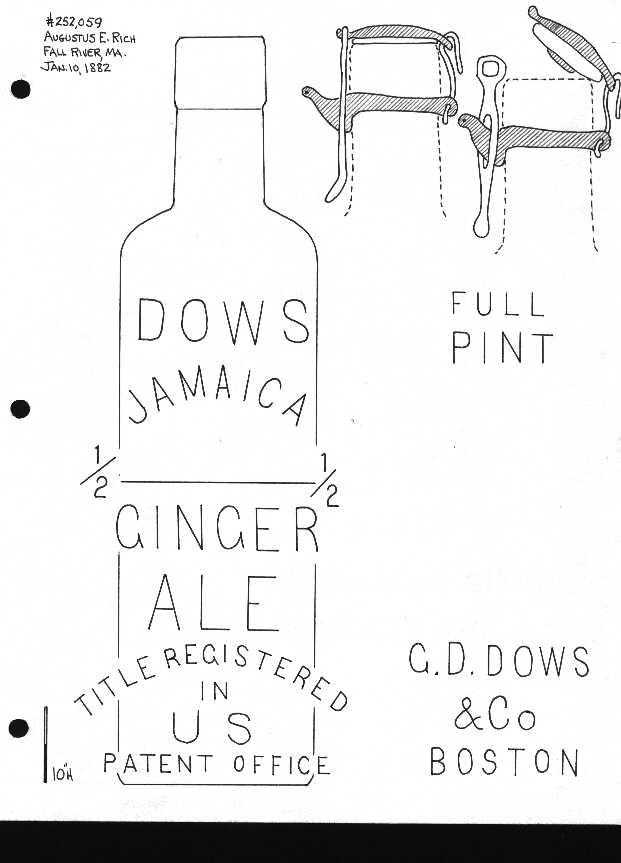 #252,059
AUGUSTUS E. RICH
FALL RIVER, MA.
JAN. 10, 1882
DOWS
JAMAICA
1/2 1/2
GINGER
ALE
TITLE REGISTERED
IN
U S
PATENT OFFICE
10"H
FULL
PINT
G. D. DOWS
& Co
BOSTON